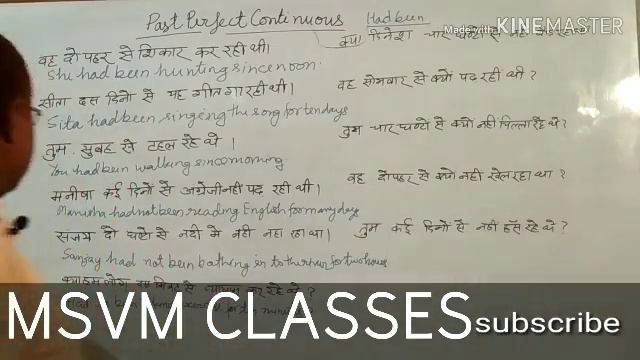 Past Perfect Continuous
Had been
Made with KINEMASTER
वह दोपहर से शिकार कर रही थी।
She had been hunting since noon.
सीता दस दिनों से यह गीत गा रही थी।
Sita had been singing the song for ten days
तुम सुबह से टहल रहे थे।
You had been walking since morning
मनीषा कई दिनों से अंग्रेजी नहीं पढ़ रही थी।
Manisha had not been reading English for many days
संजय दो घण्टे से नदी में नहीं नहा रहा था।
Sanjay had not been bathing in to the river for two hours
क्या हम लोग से कर रहे थे?
क्या दिनेश चार घण्टों से नहीं
वह सोमवार से क्यों पढ़ रही थी?
तुम चार घण्टों से क्यों नहीं चिल्ला रहे थे?
वह दोपहर से क्यों नहीं खेल रहा था?
तुम कई दिनों से नहीं हँस रहे थे?
MSVM CLASSES subscribe